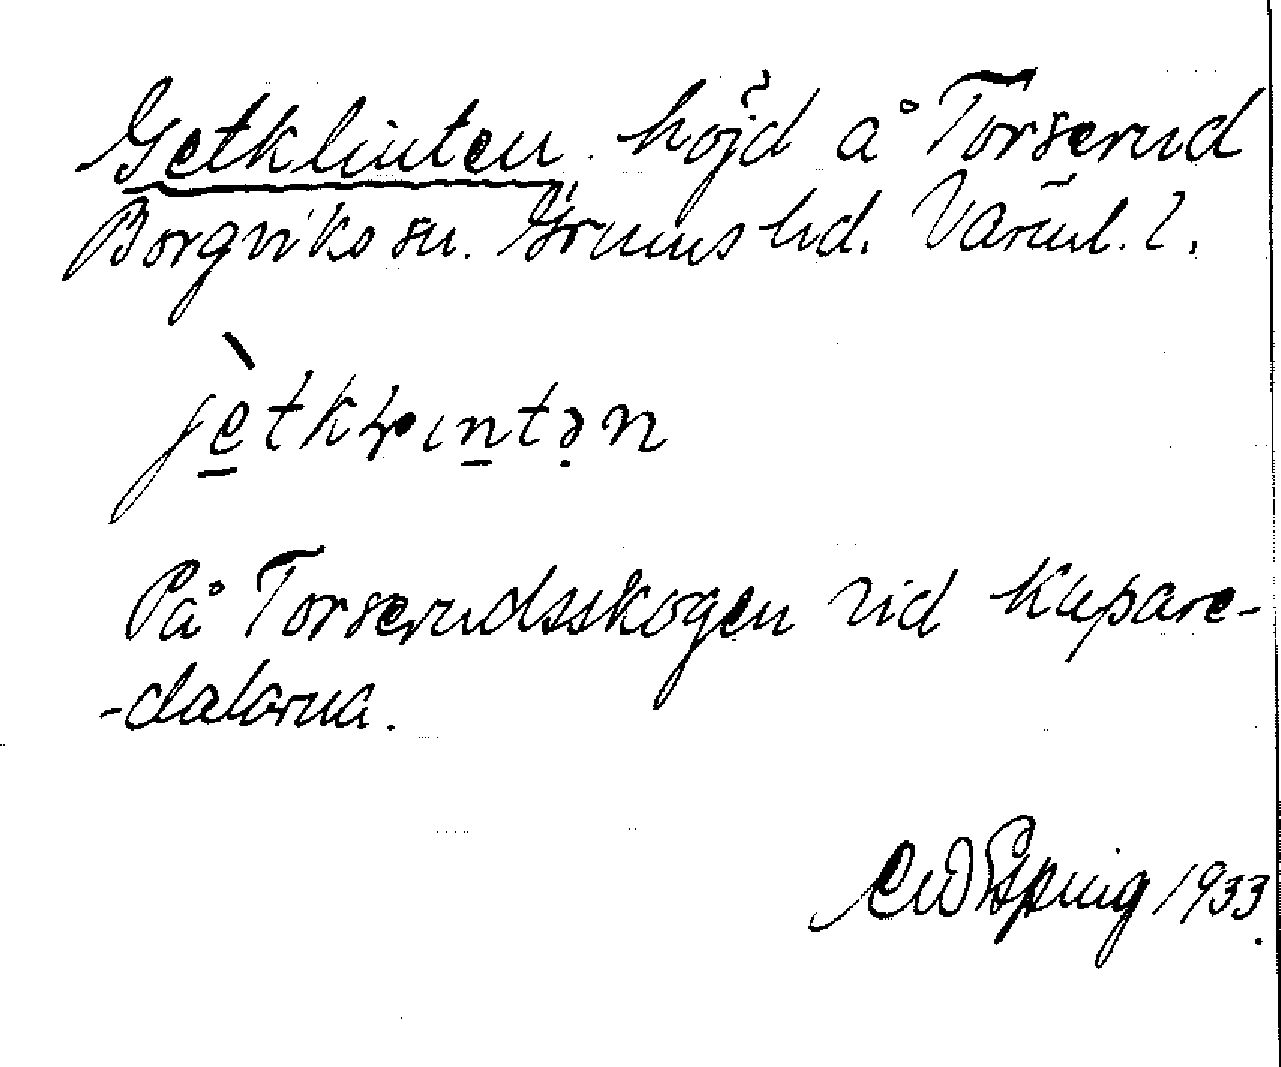 Getklinten höjd å Torserud
Borgviks sn. Grums hd. Värml. l.
jètklıntən
På Torserudsskogen vid Kupare-
-dalarna.
1933.